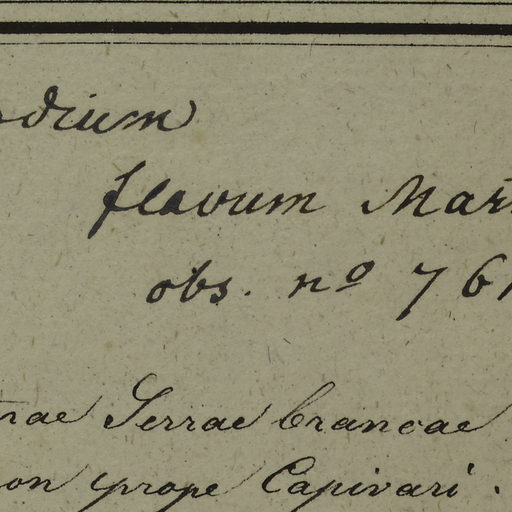 dium
flavum Mart
obs. nº 761
trae Serrae brancae
on prope Capivari.